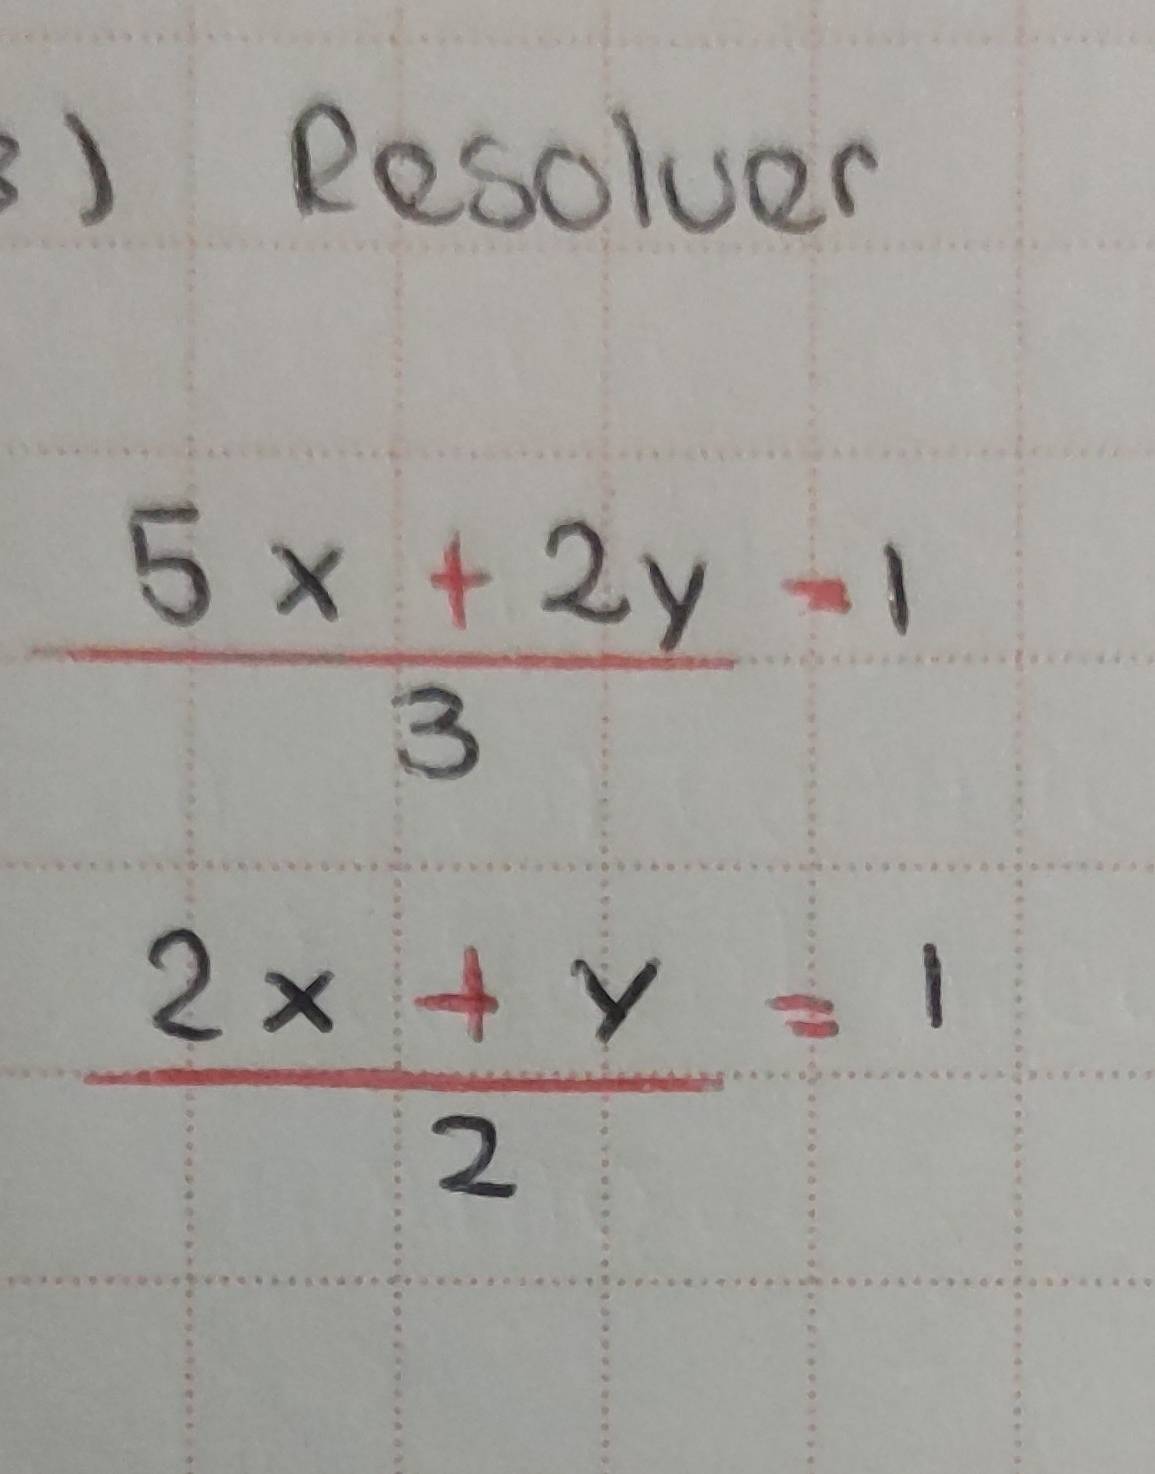 3) Resolver
5x + 2y - 1
3
2x + y = 1
2